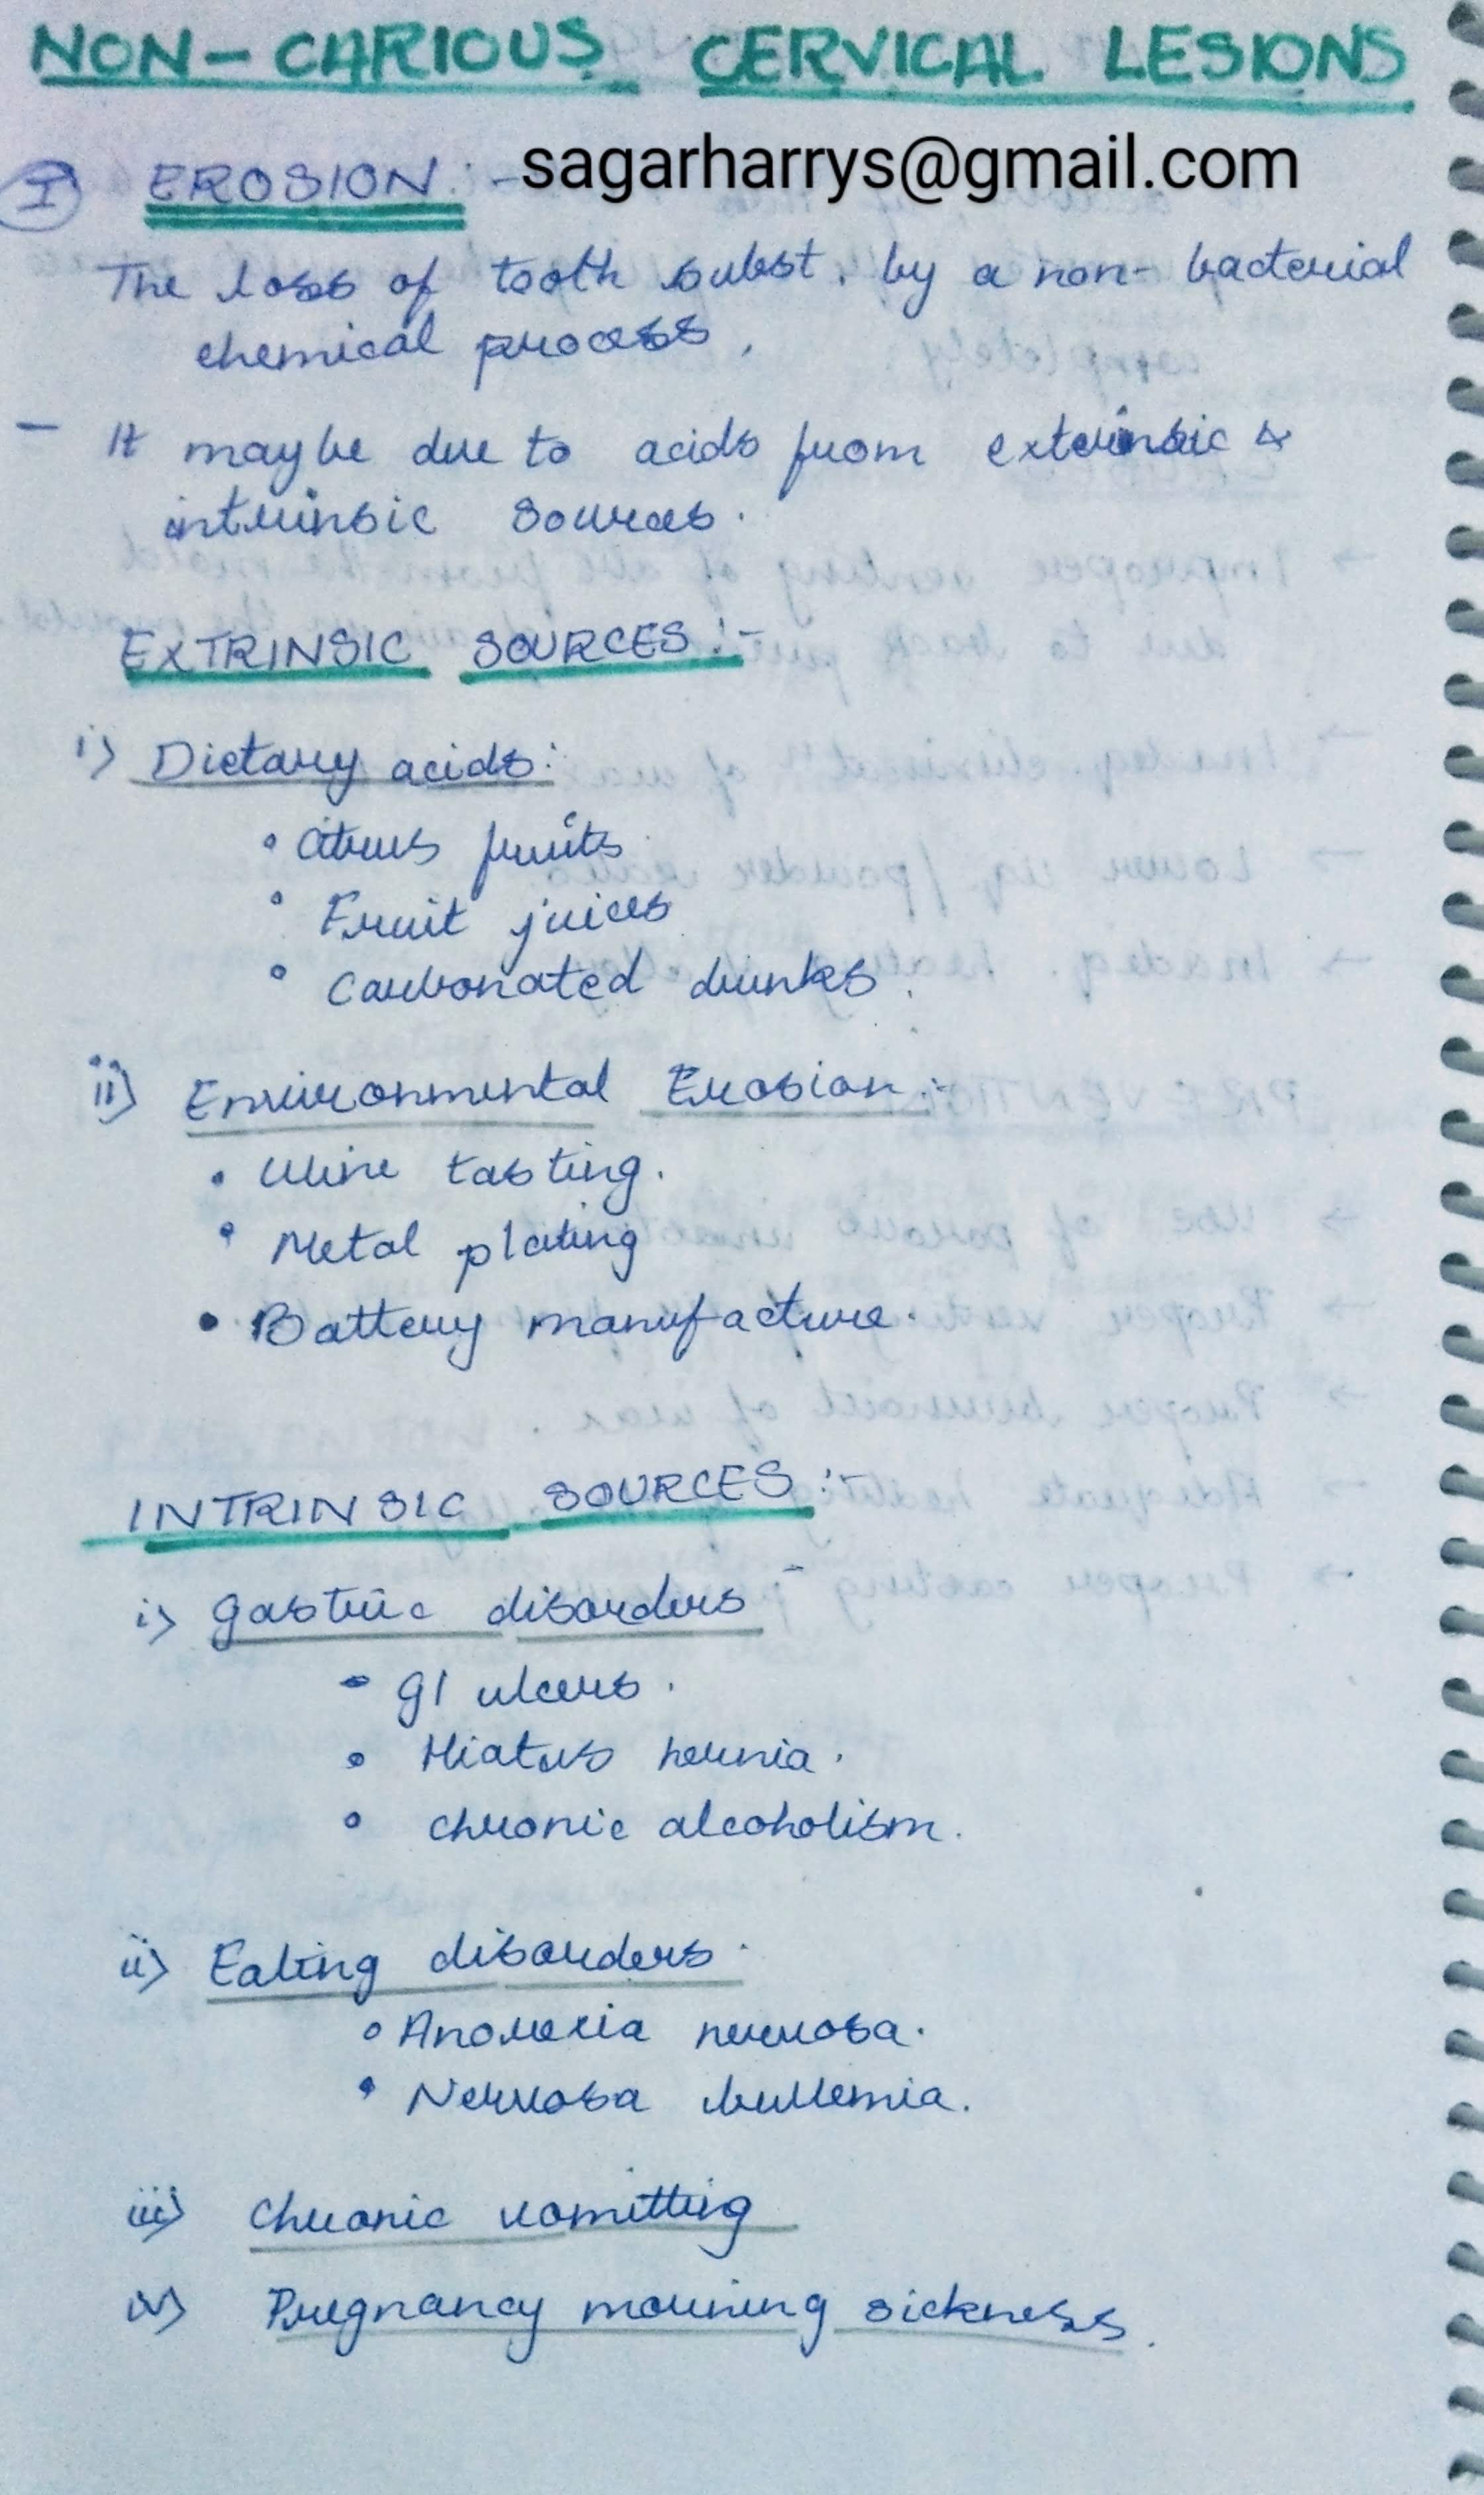 NON-CARIOUS CERVICAL LESIONS
I EROSION :- sagarharrys@gmail.com
The loss of tooth subst. by a non-bacterial
chemical process.
- It maybe due to acids from extrinsic &
intrinsic sources.
EXTRINSIC SOURCES:-
i) Dietary acids:
• Citrus fruits
• Fruit juices
• Carbonated drinks.
ii) Environmental Erosion:-
• Wine tasting.
• Metal plating
• Battery manufacture.
INTRINSIC SOURCES:-
i) Gastric disorders -
• GI ulcers.
• Hiatus hernia.
• chronic alcoholism.
ii) Eating disorders.
• Anorexia nervosa.
• Nervosa bullemia.
iii) Chronic vomitting
iv) Pregnancy morning sickness.